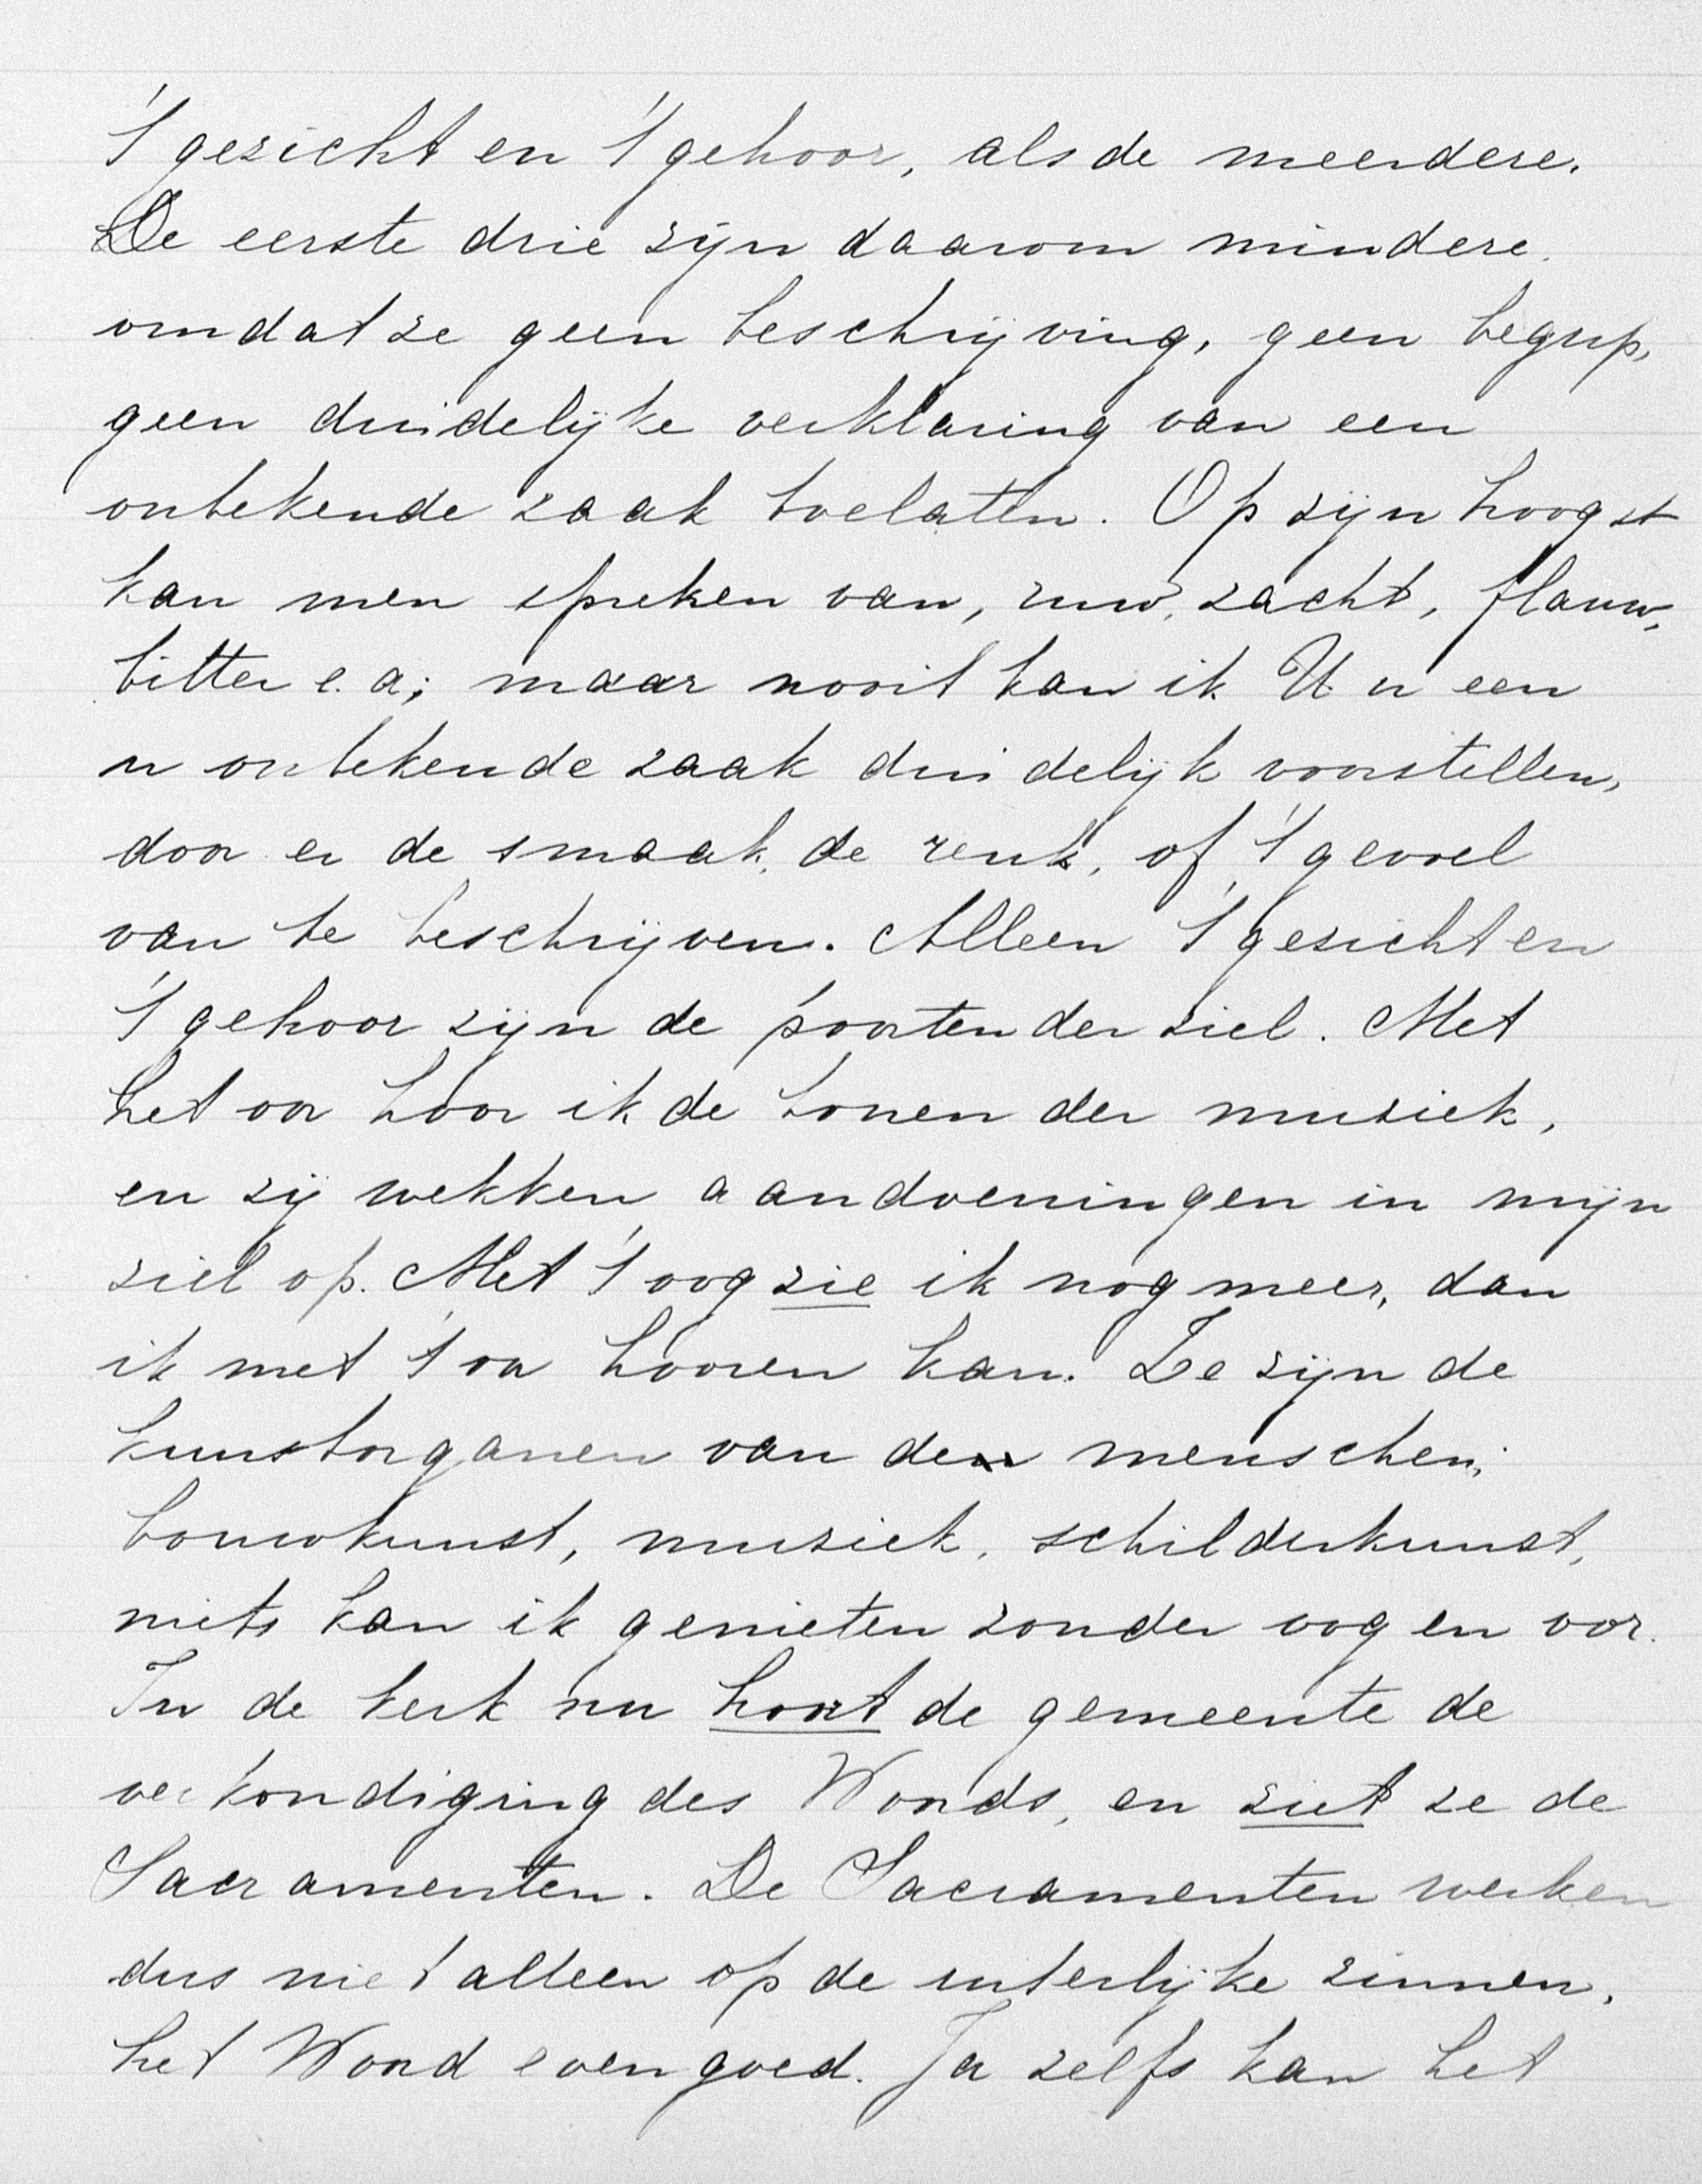 't gezicht en 't gehoor, als de meerdere.
De eerste drie zijn daarom mindere.
omdat ze geen beschrijving, geen begrip,
geen duidelijke verklaring van een
onbekende zaak toelaten. Op zijn hoogst
kan men spreken van, ruw, zacht, flauw,
bitter e.a; maar nooit kan ik U u een
n onbekende zaak duidelijk voorstellen,
door er de smaak, de reuk, of 't gevoel
van te beschrijven. Alleen 't gezicht en
't gehoor zijn de poorten der ziel. Met
het oor hoor ik de tonen der muziek,
en zij wekken aandoeningen in mijn
ziel op. Met 't oog zie ik nog meer, dan
ik met 't oor hooren kan. Ze zijn de
kunstorganen van den menschen;
bouwkunst, muziek, schilderkunst,
niets kan ik genieten zonder oog en oor.
In de kerk nu hoort de gemeente de
verkondiging des Woords, en ziet ze de
Sacramenten. De Sacramenten werken
dus niet alleen op de uiterlijke zinnen,
het Woord evengoed. Ja zelfs kan het